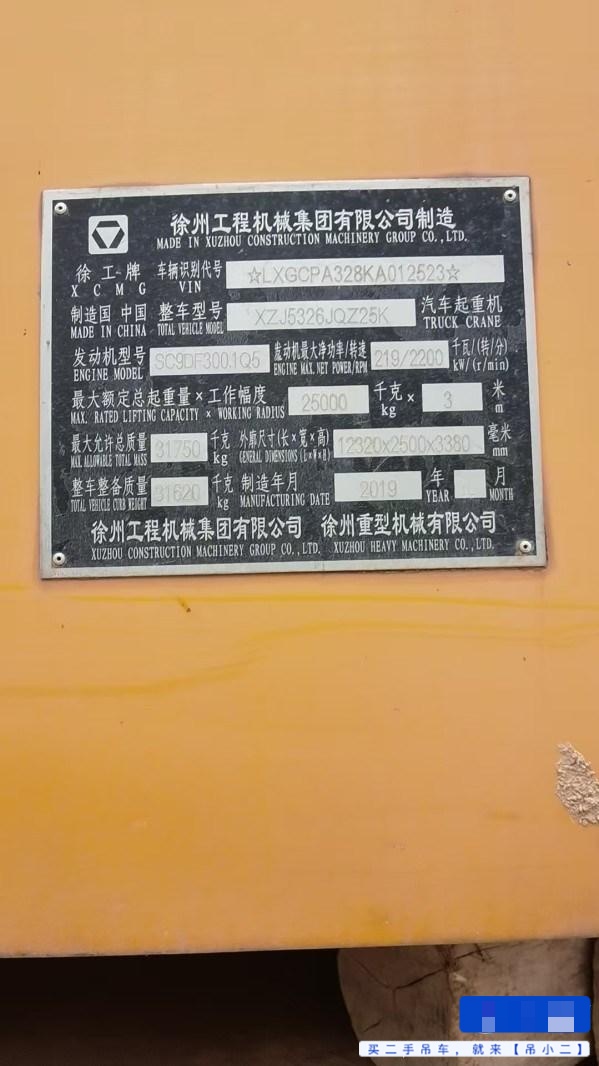 徐州工程机械集团有限公司制造
MADE IN XUZHOU CONSTRUCTION MACHINERY GROUP CO.,LTD.
徐工牌 车辆识别代号 ☆LXGCPA328KA012523☆
XCMG VIN
制造国 中国 整车型号 XZJ5326JQZ25K 汽车起重机
MADE IN CHINA TOTAL VEHICLE MODEL TRUCK CRANE
发动机型号 SC9DF300.1Q5 发动机最大净功率/转速 219/2200 千瓦/(转/分)
ENGINE MODEL ENGINE MAX.NET POWER/RPM kW/(r/min)
最大额定总起重量×工作幅度 25000 千克× 3 米
MAX. RATED LIFTING CAPACITY × WORKING RADIUS kg m
最大允许总质量 31750 千克 外廓尺寸(长×宽×高) 12320x2500x3380 毫米
MAX. ALLOWABLE TOTAL MASS kg GENERAL DIMENSIONS (L×W×H) mm
整车整备质量 31620 千克 制造年月 2019 年 月
TOTAL VEHICLE CURB WEIGHT kg MANUFACTURING DATE YEAR MONTH
徐州工程机械集团有限公司 徐州重型机械有限公司
XUZHOU CONSTRUCTION MACHINERY GROUP CO.,LTD. XUZHOU HEAVY MACHINERY CO.,LTD.
买二手吊车，就来【吊小二】